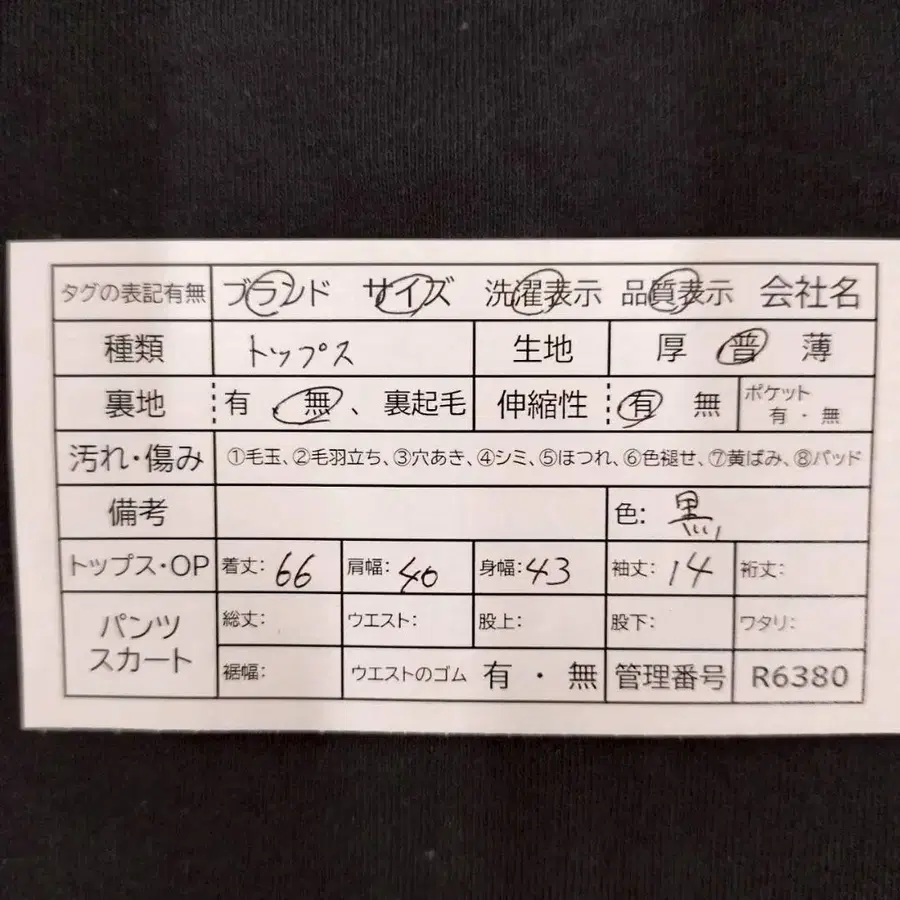 タグの表記有無 ブランド サイズ 洗濯表示 品質表示 会社名
種類 トップス 生地 厚 普 薄
裏地 有 、無、裏起毛 伸縮性 有 無 ポケット 有・無
汚れ・傷み ①毛玉、②毛羽立ち、③穴あき、④シミ、⑤ほつれ、⑥色褪せ、⑦黄ばみ、⑧パッド
備考 色: 黒
トップス・OP 着丈: 66 肩幅: 40 身幅: 43 袖丈: 14 裄丈:
パンツ スカート 総丈: ウエスト: 股上: 股下: ワタリ:
裾幅: ウエストのゴム 有・無 管理番号 R6380